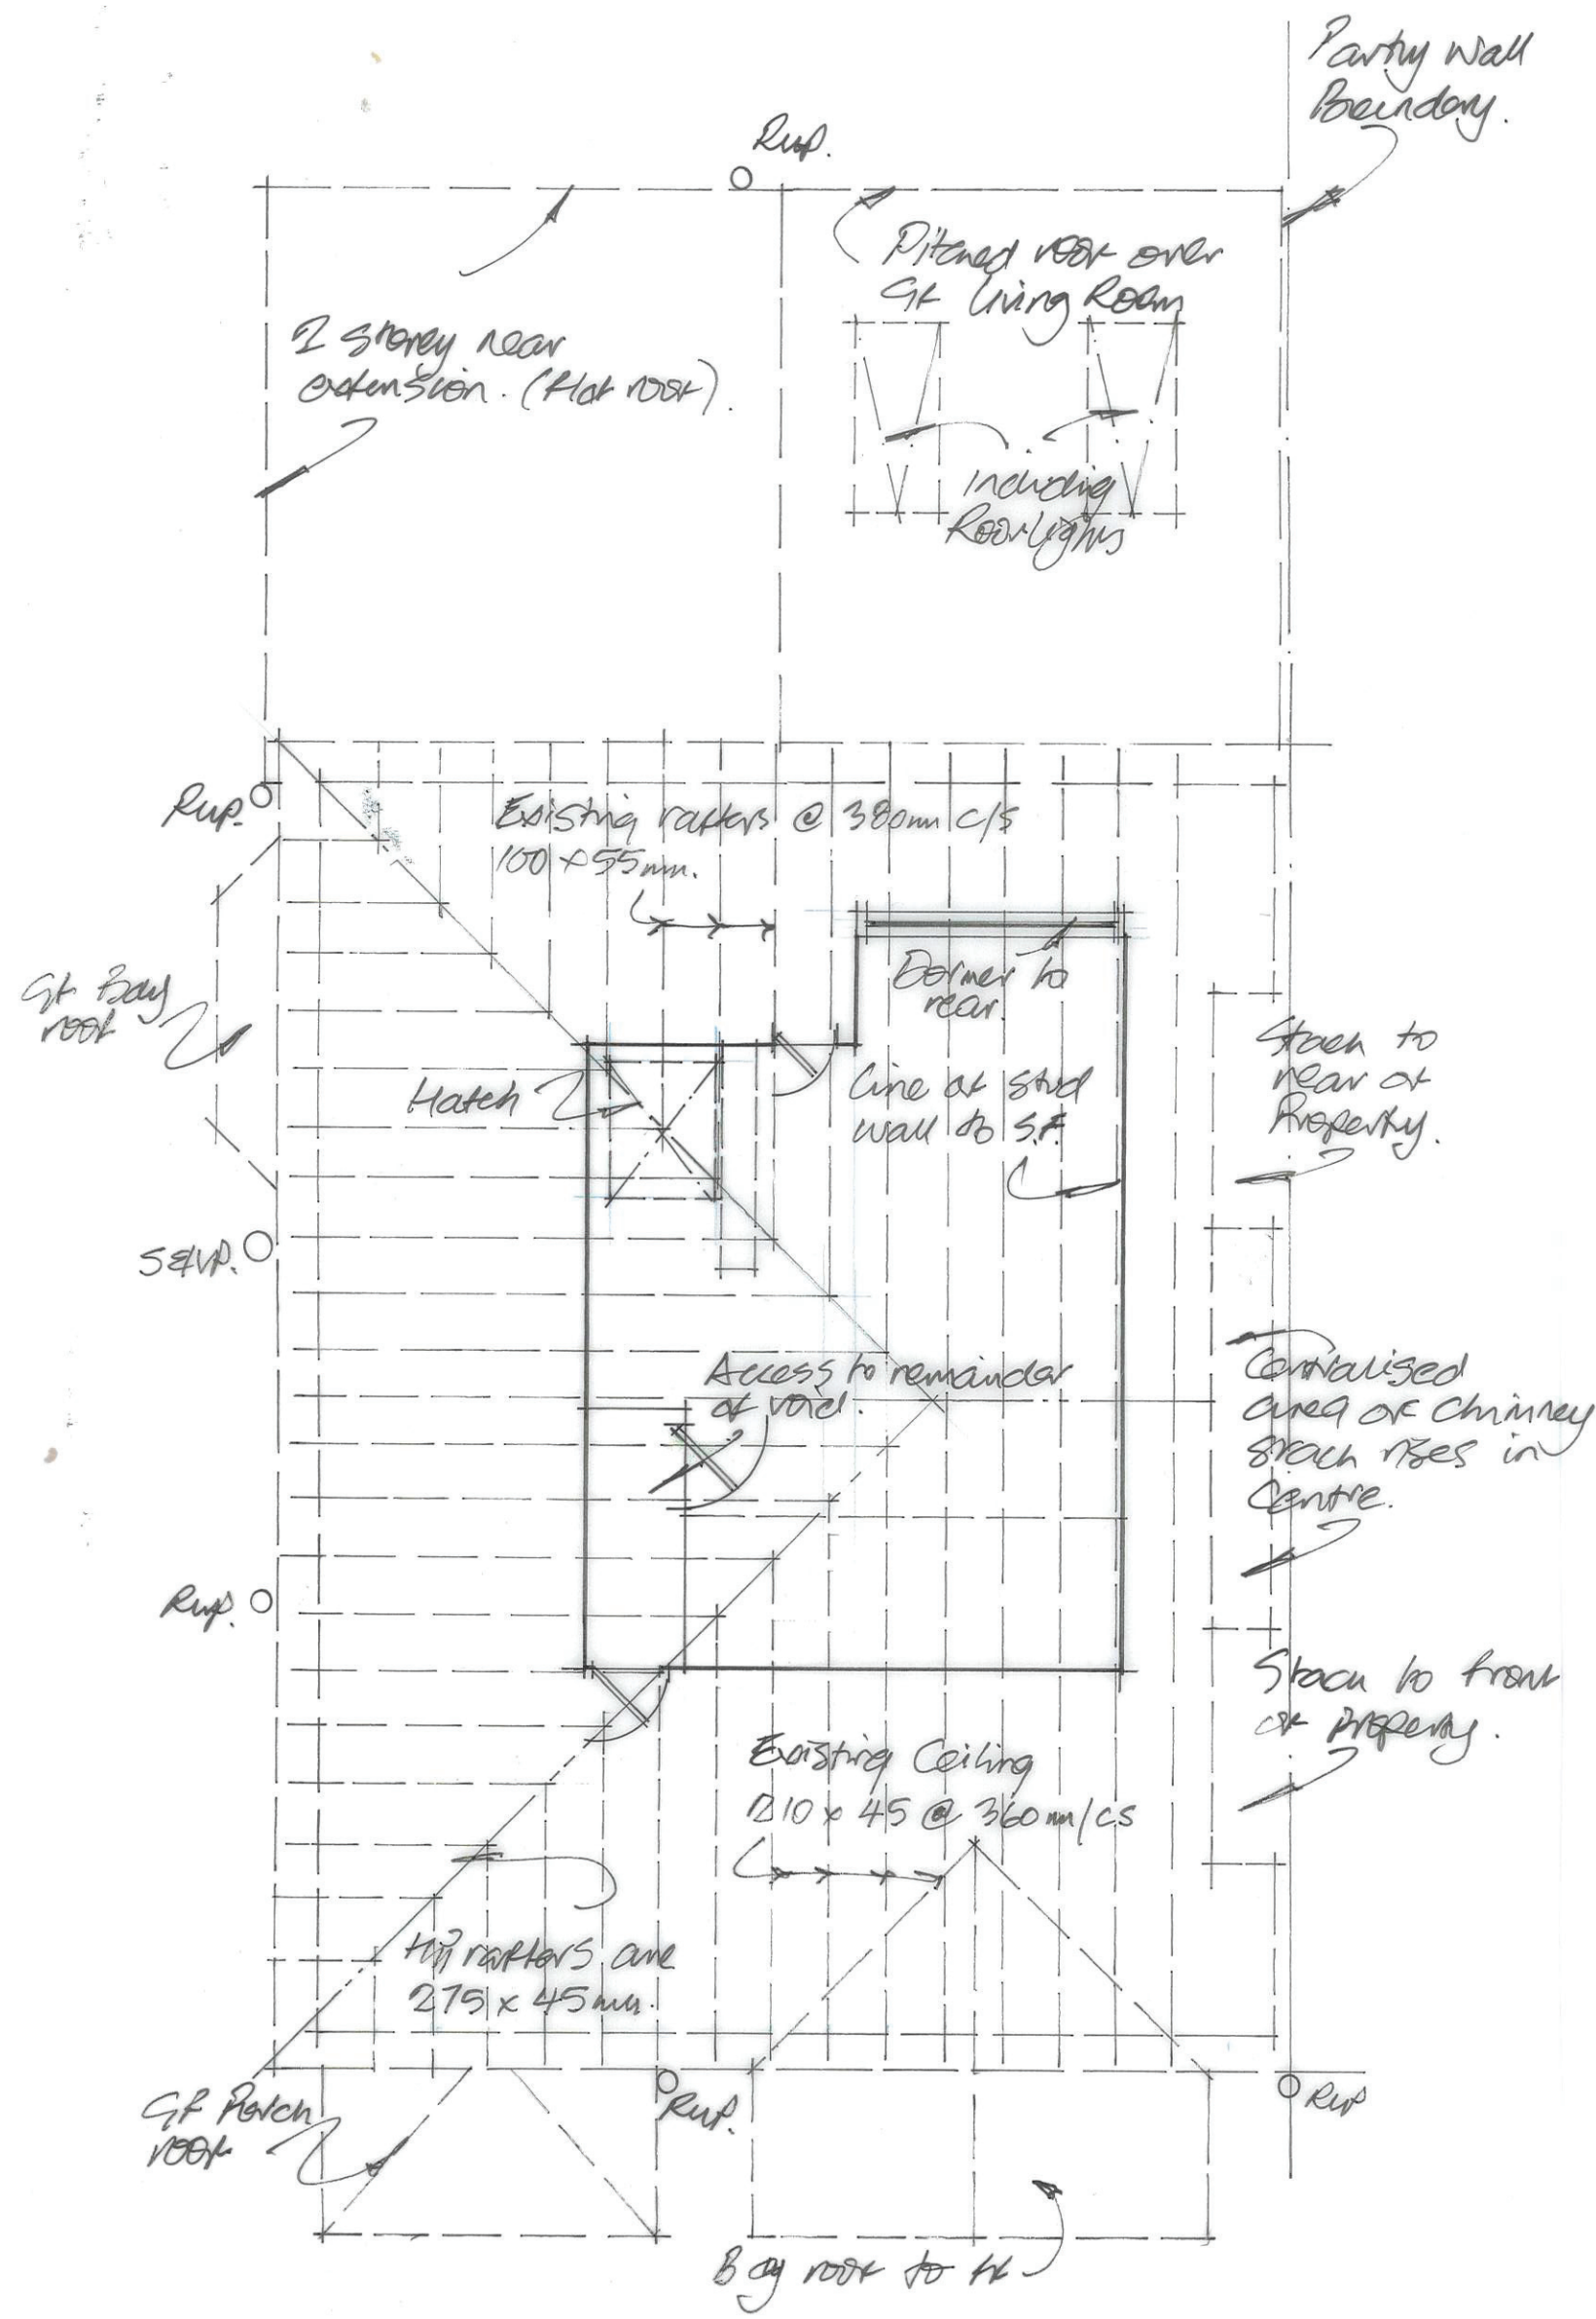 Party Wall
Boundary.
Rwp.
Pitched roof over
GF Living Room
2 Storey rear
extension. (Flat roof).
Including
Rooflights
Rwp.
Existing rafters @ 380mm c/s
100 x 55mm.
GF Bay
roof
Dormer to
rear.
Stack to
rear of
Property.
Hatch
Line of stud
wall to S.F.
S&VP.
Access to remainder
of void.
Centralised
area of chimney
stack rises in
Centre.
Rwp.
Stack to front
of Property.
Existing Ceiling
210 x 45 @ 360mm/cs
Hip rafters are
275 x 45mm.
GF Porch
roof
Rwp.
Rwp
Bay roof to FF